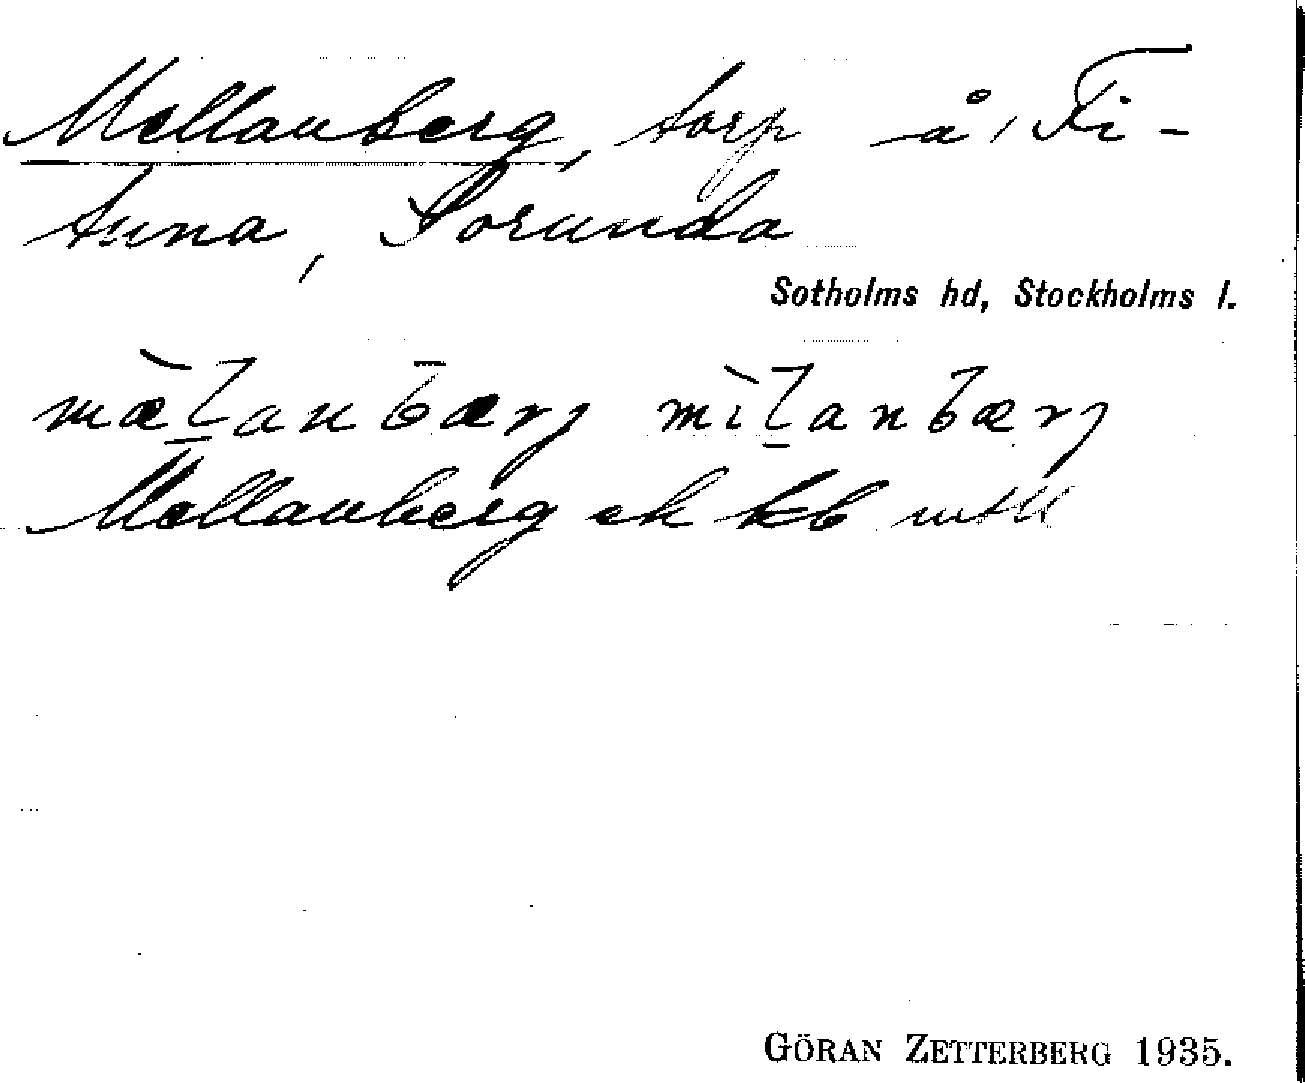 Mellanberg, torp å, Fi-
tuna, Sorunda
Sotholms hd, Stockholms l.
mæ̀l̲anbærj mìl̲anbærj
Mellanberg ek kb
GÖRAN ZETTERBERG 1935.